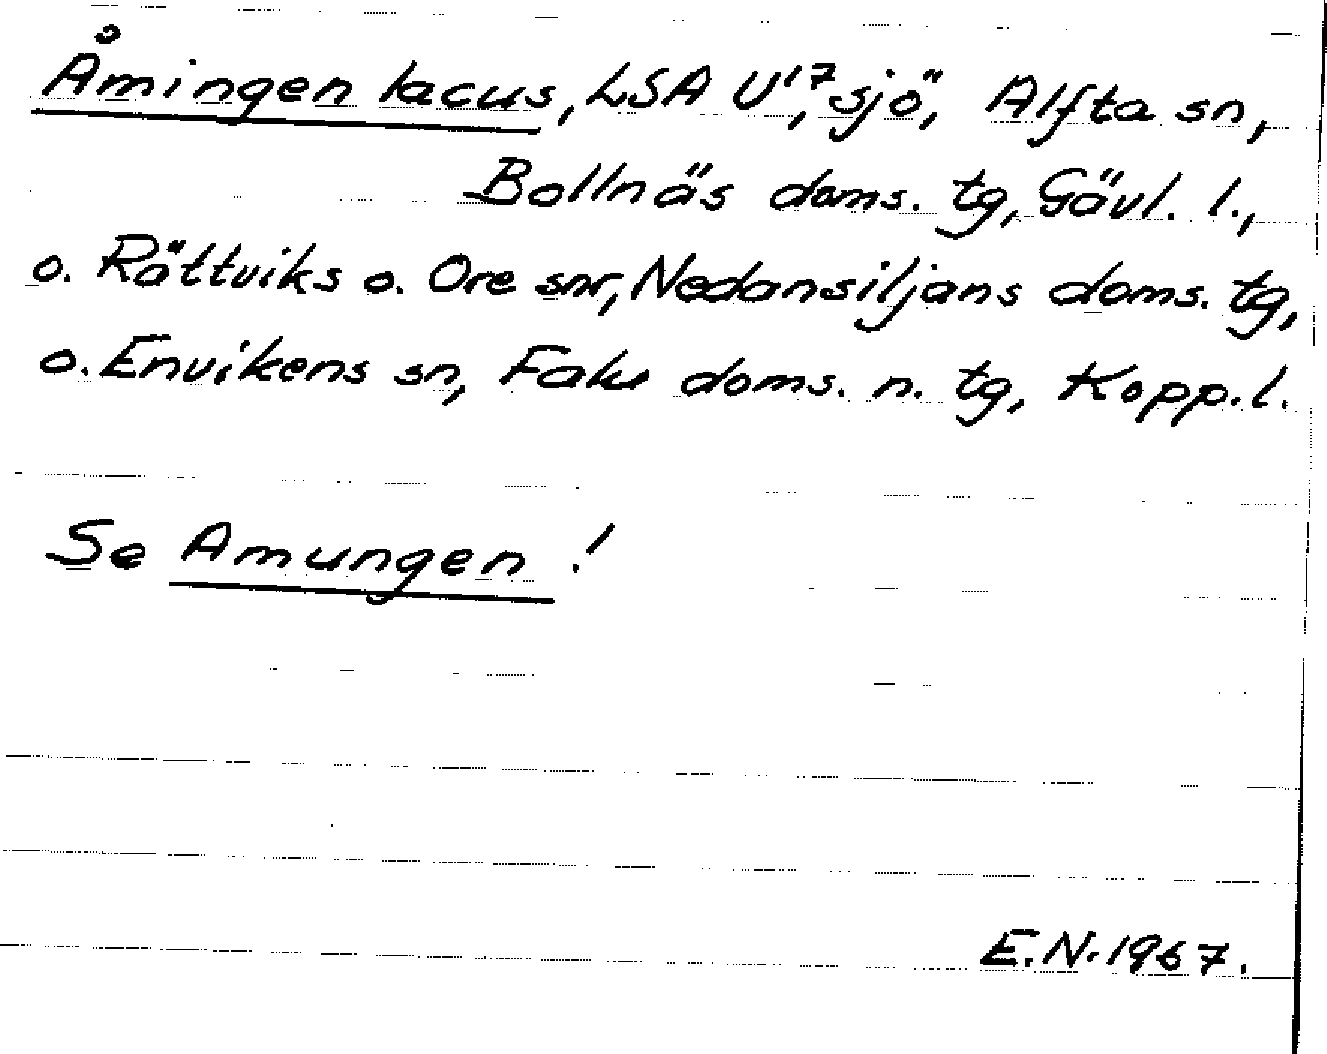 Åmingen lacus, LSA U¹⁷, sjö, Alfta sn,
Bollnäs doms. tg, Gävl. l.,
o. Rättviks o. Ore snr, Nedansiljans doms. tg,
o. Envikens sn, Falu doms. n. tg, Kopp. l.
Se Amungen!
E.N. 1967.